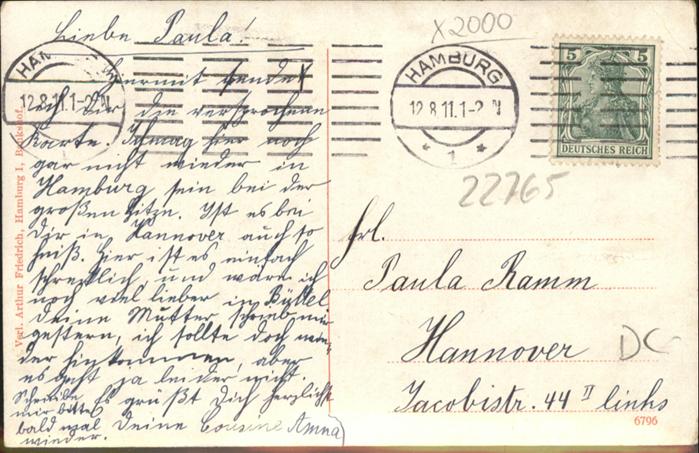 Liebe Paula!
Hiermit sende
ich Dir die versprochene
Karte. Ich mag hier noch
gar nicht wieder in
Hamburg sein bei der
großen Hitze. Ist es bei
Dir in Hannover auch so
heiß. Hier ist es einfach
schrecklich und wäre ich
noch viel lieber in
Deine Mutter schrieb mir
gestern, ich sollte doch wie-
der hinkommen, aber
es geht ja leider nicht.
Es grüßt Dich herzlichst
Deine Cousine Anna
Schreibe
mir bitte
bald mal
wieder.
X2000
HAMBURG
12.8.11.1-2N
* 1 *
HAM
12.8.11.1-2N
5 5
DEUTSCHES REICH
22765
Frl.
Paula Ramm
Hannover
Jacobistr. 44 II links
DC
6796
Verl. Arthur Friedrich, Hamburg 1,